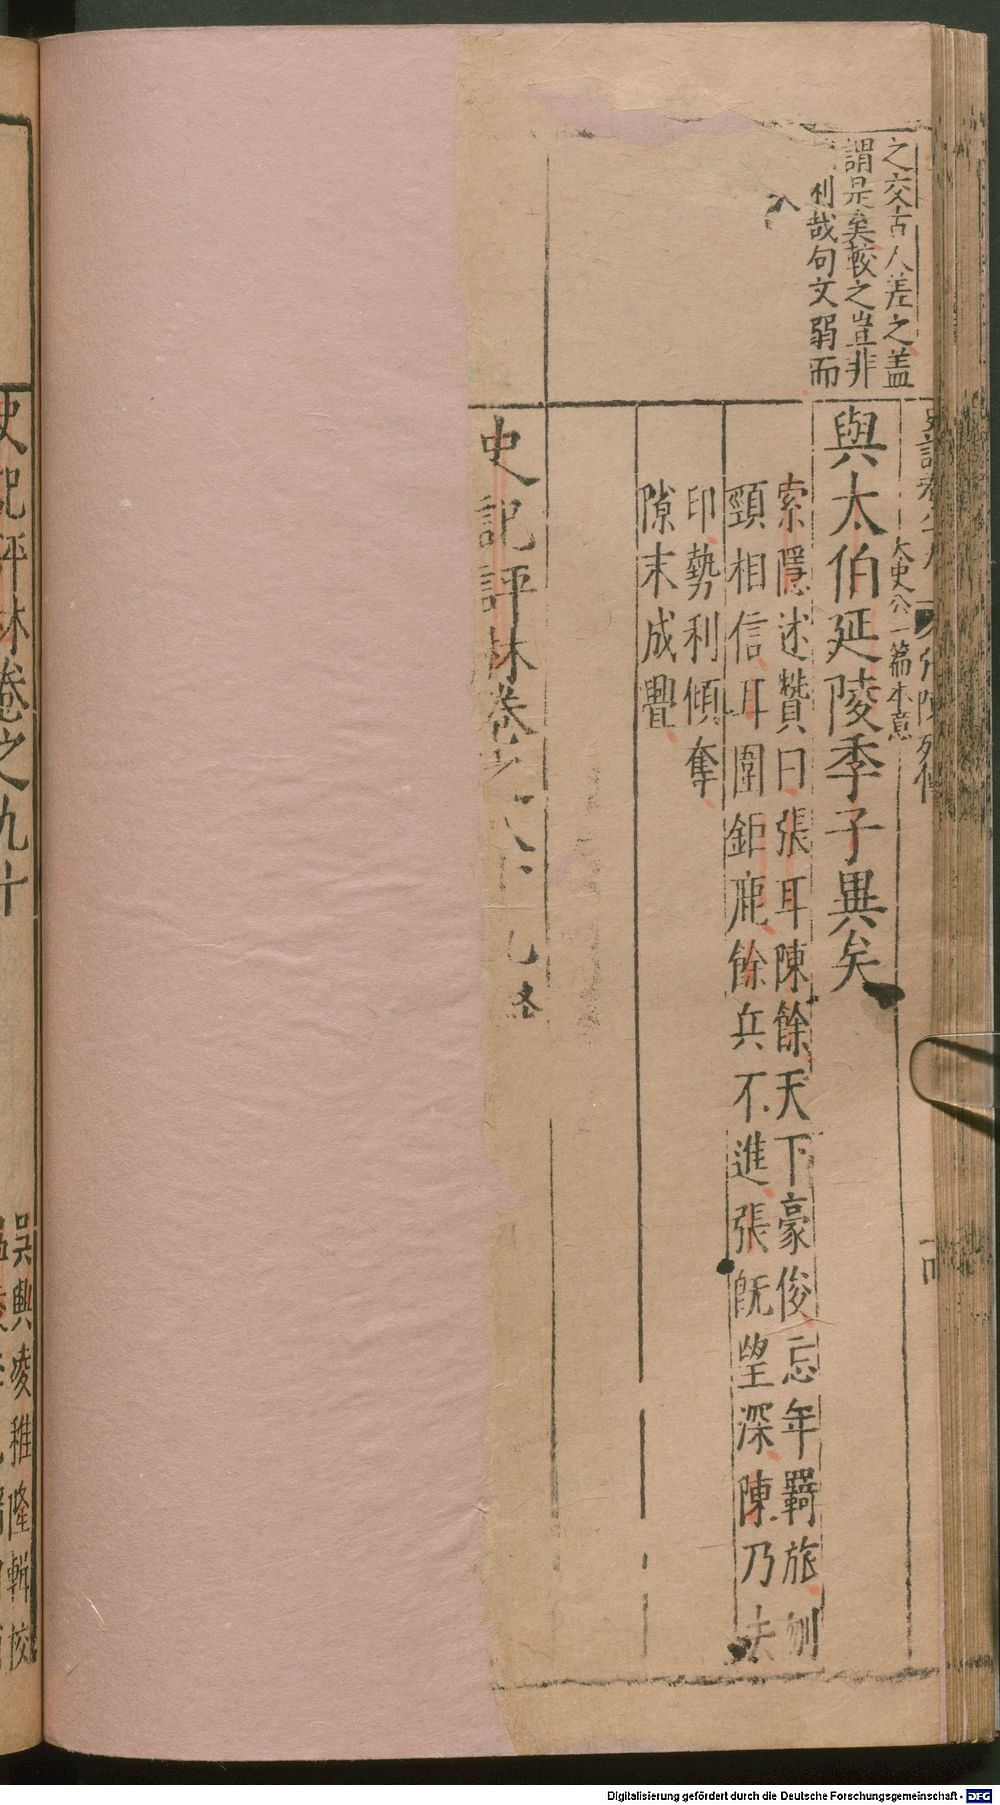 之交古人差之盖
謂是矣較之豈非
利哉句文弱而
與太伯延陵季子異矣
太史公一篇本意
索隱述贊曰張耳陳餘天下豪俊忘年羇旅刎
頸相信耳圍鉅鹿餘兵不進張旣望深陳乃去
印勢利傾奪
隙末成釁
史記評林卷之八十九終
史記評林卷之九十
吳興凌稚隆輯校
Digitalisierung gefördert durch die Deutsche Forschungsgemeinschaft - DFG